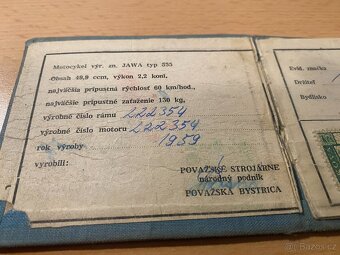 Motocykel výr. zn. JAWA typ 555
Obsah 49,9 ccm, výkon 2,2 koní,
najväčšia prípustná rýchlosť 60 km/hod.,
najväčšie prípustné zaťaženie 130 kg,
výrobné číslo rámu 222354
výrobné číslo motoru 222354
rok výroby 1959
vyrobili:
POVAŽSKÉ STROJÁRNE
národný podnik
POVAŽSKÁ BYSTRICA
Evid. značka
Držiteľ
Bydlisko